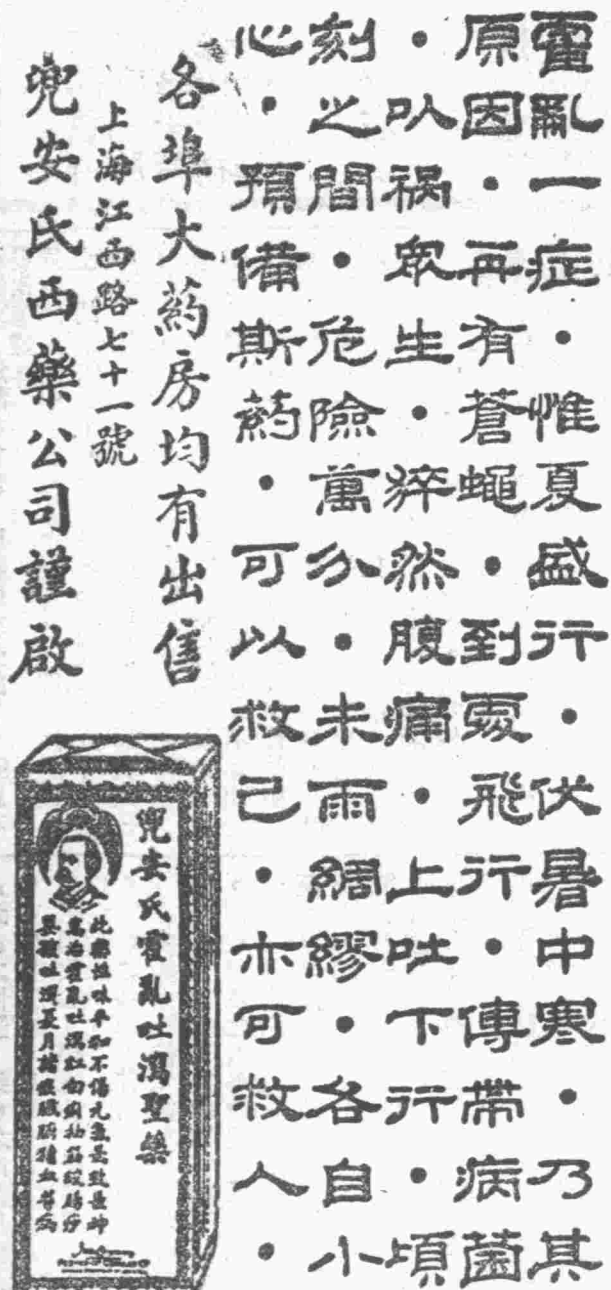 霍亂一症・惟夏盛行・伏暑中寒・乃其
原因・再有蒼蠅・到處飛行・傳帶病菌
・以禍眾生・猝然腹痛・上吐下行・頃
刻之間・危險萬分・未雨綢繆・各自小
心・預備斯葯・可以救己・亦可救人・
各埠大葯房均有出售
上海江西路七十一號
兜安氏西藥公司謹啟
兜安氏霍亂吐瀉聖藥
此藥性味平和不傷元氣
霍亂吐瀉紅白痢抽筋絞腸痧